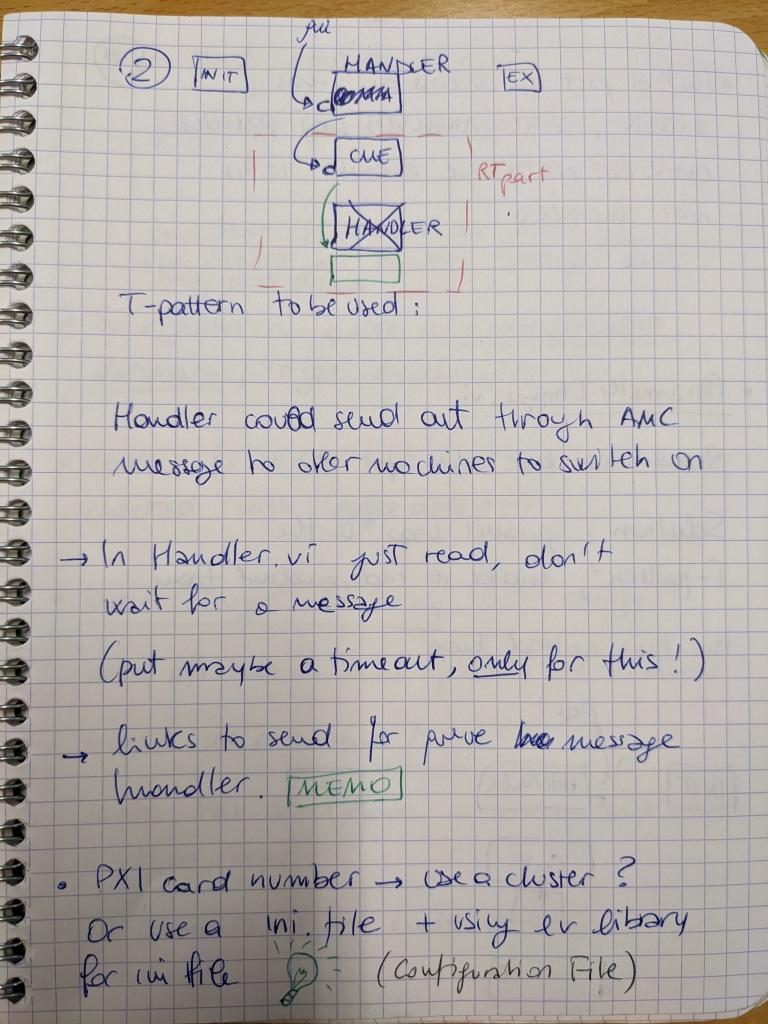 2 INIT HANDLER EX
CUE RT part
HANDLER
T-pattern to be used :
Handler could send out throygh AMC
message to other machines to switch on
→ In Handler.vi just read, don't
wait for a message
(put maybe a timeout, only for this !)
→ links to send for message
handler. MEMO
• PXI card number → use a cluster ?
Or use a ini. file + using library
for ini file (Configuration File)